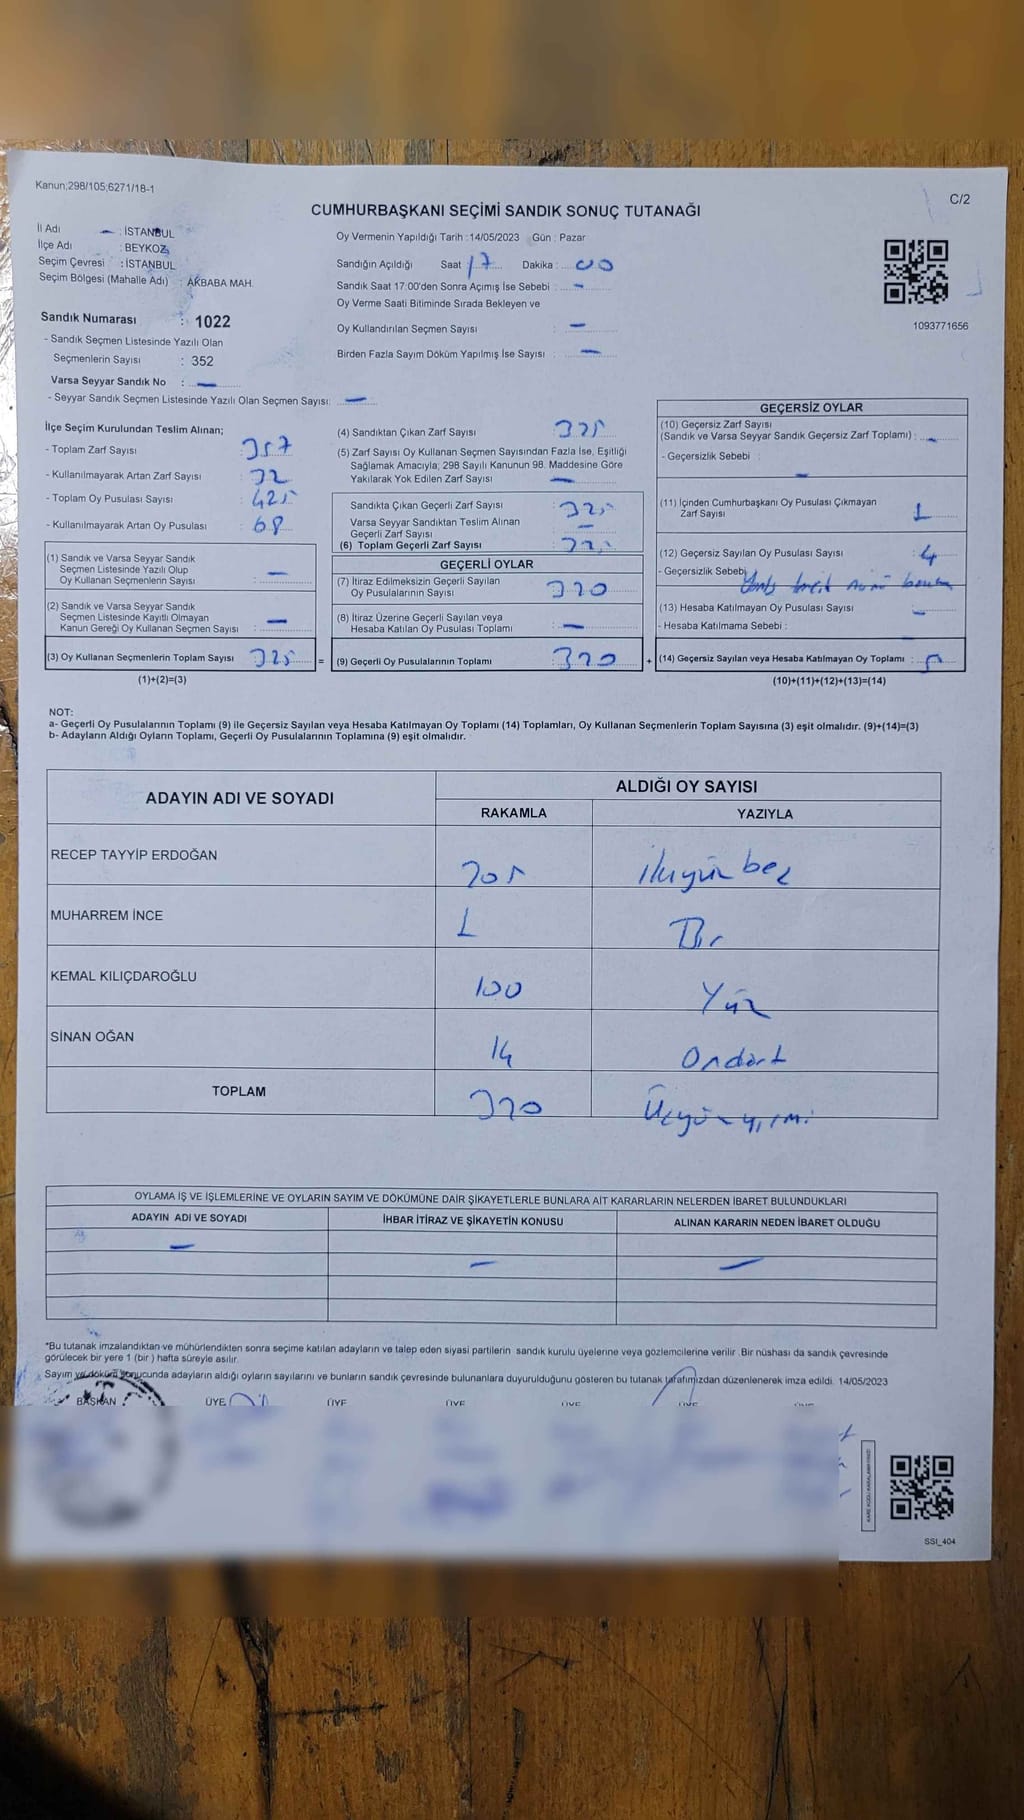 Kanun;298/105;6271/18-1
C/2
CUMHURBAŞKANI SEÇİMİ SANDIK SONUÇ TUTANAĞI
İl Adı : İSTANBUL
İlçe Adı : BEYKOZ
Seçim Çevresi : İSTANBUL
Seçim Bölgesi (Mahalle Adı) : AKBABA MAH.
Oy Vermenin Yapıldığı Tarih :14/05/2023 Gün : Pazar
Sandığın Açıldığı Saat 17 Dakika : 00
Sandık Saat 17:00'den Sonra Açımış İse Sebebi : -
Oy Verme Saati Bitiminde Sırada Bekleyen ve
Oy Kullandırılan Seçmen Sayısı : -
Birden Fazla Sayım Döküm Yapılmış İse Sayısı : -
1093771656
Sandık Numarası : 1022
- Sandık Seçmen Listesinde Yazılı Olan
Seçmenlerin Sayısı : 352
Varsa Seyyar Sandık No : -
- Seyyar Sandık Seçmen Listesinde Yazılı Olan Seçmen Sayısı: -
İlçe Seçim Kurulundan Teslim Alınan;
- Toplam Zarf Sayısı 357
- Kullanılmayarak Artan Zarf Sayısı : 32
- Toplam Oy Pusulası Sayısı : 425
- Kullanılmayarak Artan Oy Pusulası : 68
(1) Sandık ve Varsa Seyyar Sandık
Seçmen Listesinde Yazılı Olup
Oy Kullanan Seçmenlerin Sayısı : -
(2) Sandık ve Varsa Seyyar Sandık
Seçmen Listesinde Kayıtlı Olmayan
Kanun Gereği Oy Kullanan Seçmen Sayısı : -
(3) Oy Kullanan Seçmenlerin Toplam Sayısı : 325 =
(1)+(2)=(3)
(4) Sandıktan Çıkan Zarf Sayısı : 325
(5) Zarf Sayısı Oy Kullanan Seçmen Sayısından Fazla İse, Eşitliği
Sağlamak Amacıyla; 298 Sayılı Kanunun 98. Maddesine Göre
Yakılarak Yok Edilen Zarf Sayısı : -
Sandıkta Çıkan Geçerli Zarf Sayısı : 325
Varsa Seyyar Sandıktan Teslim Alınan
Geçerli Zarf Sayısı : -
(6) Toplam Geçerli Zarf Sayısı : 325
GEÇERLİ OYLAR
(7) İtiraz Edilmeksizin Geçerli Sayılan
Oy Pusulalarının Sayısı : 320
(8) İtiraz Üzerine Geçerli Sayılan veya
Hesaba Katılan Oy Pusulası Toplamı : -
(9) Geçerli Oy Pusulalarının Toplamı : 320 +
GEÇERSİZ OYLAR
(10) Geçersiz Zarf Sayısı
(Sandık ve Varsa Seyyar Sandık Geçersiz Zarf Toplamı) : -
- Geçersizlik Sebebi :
-
(11) İçinden Cumhurbaşkanı Oy Pusulası Çıkmayan
Zarf Sayısı : 1
(12) Geçersiz Sayılan Oy Pusulası Sayısı : 4
- Geçersizlik Sebebi
(13) Hesaba Katılmayan Oy Pusulası Sayısı : -
- Hesaba Katılmama Sebebi :
(14) Geçersiz Sayılan veya Hesaba Katılmayan Oy Toplamı : 5
(10)+(11)+(12)+(13)=(14)
NOT:
a- Geçerli Oy Pusulalarının Toplamı (9) ile Geçersiz Sayılan veya Hesaba Katılmayan Oy Toplamı (14) Toplamları, Oy Kullanan Seçmenlerin Toplam Sayısına (3) eşit olmalıdır. (9)+(14)=(3)
b- Adayların Aldığı Oyların Toplamı, Geçerli Oy Pusulalarının Toplamına (9) eşit olmalıdır.
ADAYIN ADI VE SOYADI
ALDIĞI OY SAYISI
RAKAMLA YAZIYLA
RECEP TAYYİP ERDOĞAN 205 ikiyüz beş
MUHARREM İNCE 1 Bir
KEMAL KILIÇDAROĞLU 100 Yüz
SİNAN OĞAN 14 Ondört
TOPLAM 320 Üçyüz yirmi
OYLAMA İŞ VE İŞLEMLERİNE VE OYLARIN SAYIM VE DÖKÜMÜNE DAİR ŞİKAYETLERLE BUNLARA AİT KARARLARIN NELERDEN İBARET BULUNDUKLARI
ADAYIN ADI VE SOYADI İHBAR İTİRAZ VE ŞİKAYETİN KONUSU ALINAN KARARIN NEDEN İBARET OLDUĞU
- - -
*Bu tutanak imzalandıktan ve mühürlendikten sonra seçime katılan adayların ve talep eden siyasi partilerin sandık kurulu üyelerine veya gözlemcilerine verilir .Bir nüshası da sandık çevresinde
görülecek bir yere 1 (bir ) hafta süreyle asılır.
Sayım ve döküm sonucunda adayların aldığı oyların sayılarını ve bunların sandık çevresinde bulunanlara duyurulduğunu gösteren bu tutanak tarafımızdan düzenlenerek imza edildi. 14/05/2023
BAŞKAN ÜYE ÜYE ÜYE ÜYE ÜYE ÜYE
SSI_404